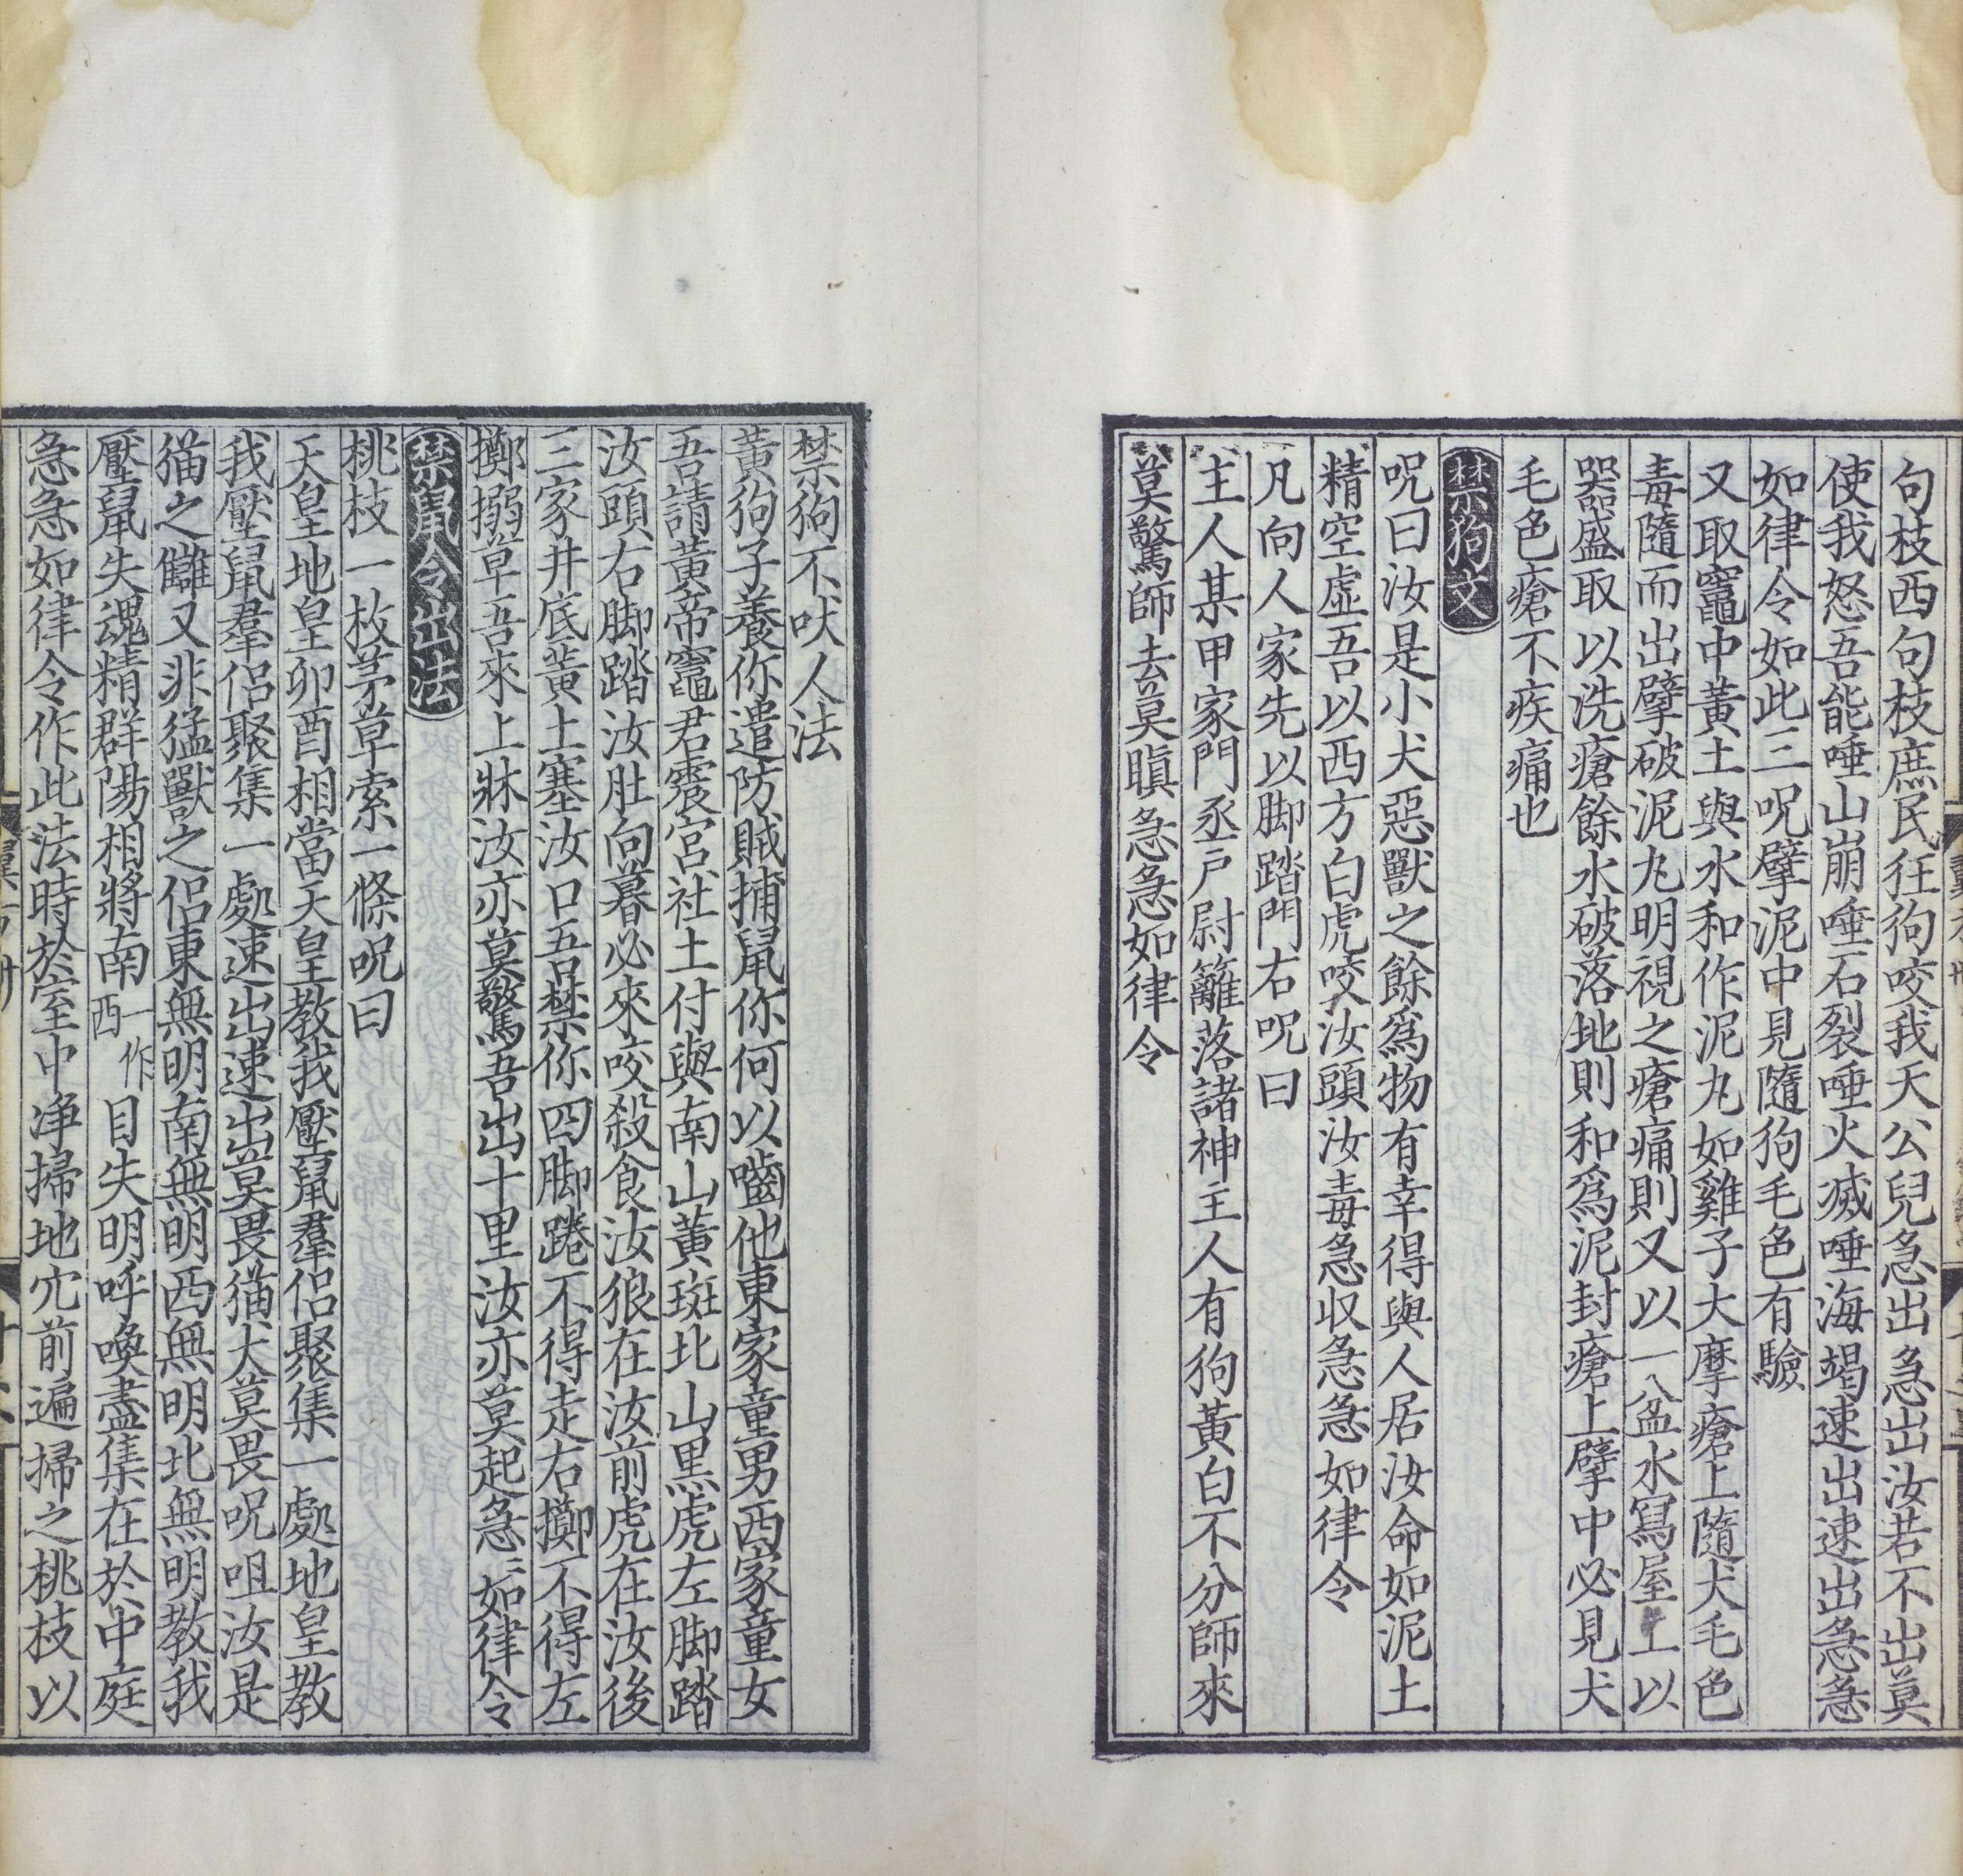 句枝西句枝庶民狂狗咬我天公兒急出急出汝若不出莫
使我怒吾能唾山崩唾石裂唾火滅唾海竭速出速出急急
如律令如此三呪擘泥中見隨狗毛色有驗
又取竈中黃土與水和作泥丸如雞子大摩瘡上隨犬毛色
毒隨而出擘破泥丸明視之瘡痛則又以一八盆水寫屋上以
器盛取以洗瘡餘水破落地則和爲泥封瘡上擘中必見犬
毛色瘡不疾痛也
禁狗文
呪曰汝是小犬惡獸之餘爲物有幸得與人居汝命如泥土
精空虛吾以西方白虎咬汝頭汝毒急収急急如律令
凡向人家先以脚踏門右呪曰
主人某甲家門丞戶尉籬落諸神主人有狗黃白不分師來
莫驚師去莫瞋急急如律令
禁狗不吠人法
黃狗子養你遣防賊捕鼠你何以嚙他東家童男西家童女
吾請黃帝竈君震宮社土付與南山黃斑北山黑虎左脚踏
汝頭右脚踏汝肚向暮必來咬殺食汝狼在汝前虎在汝後
三家井底黃土塞汝口吾禁你四脚踡不得走右擲不得左
擲搦草吾來上牀汝亦莫驚吾出十里汝亦莫起急〻如律令
禁鼠令出法
桃枝一枚茅草索一條呪曰
天皇地皇卯酉相當天皇教我壓鼠羣侶聚集一處地皇教
我壓鼠羣侶聚集一處速出速出莫畏猫犬莫畏呪咀汝是
猫之讎又非猛獸之侶東無明南無明西無明北無明教我
壓鼠失魂精群陽相將南一作西目失明呼喚盡集在於中庭
急急如律令作此法時於室中净掃地穴前遍掃之桃枝以